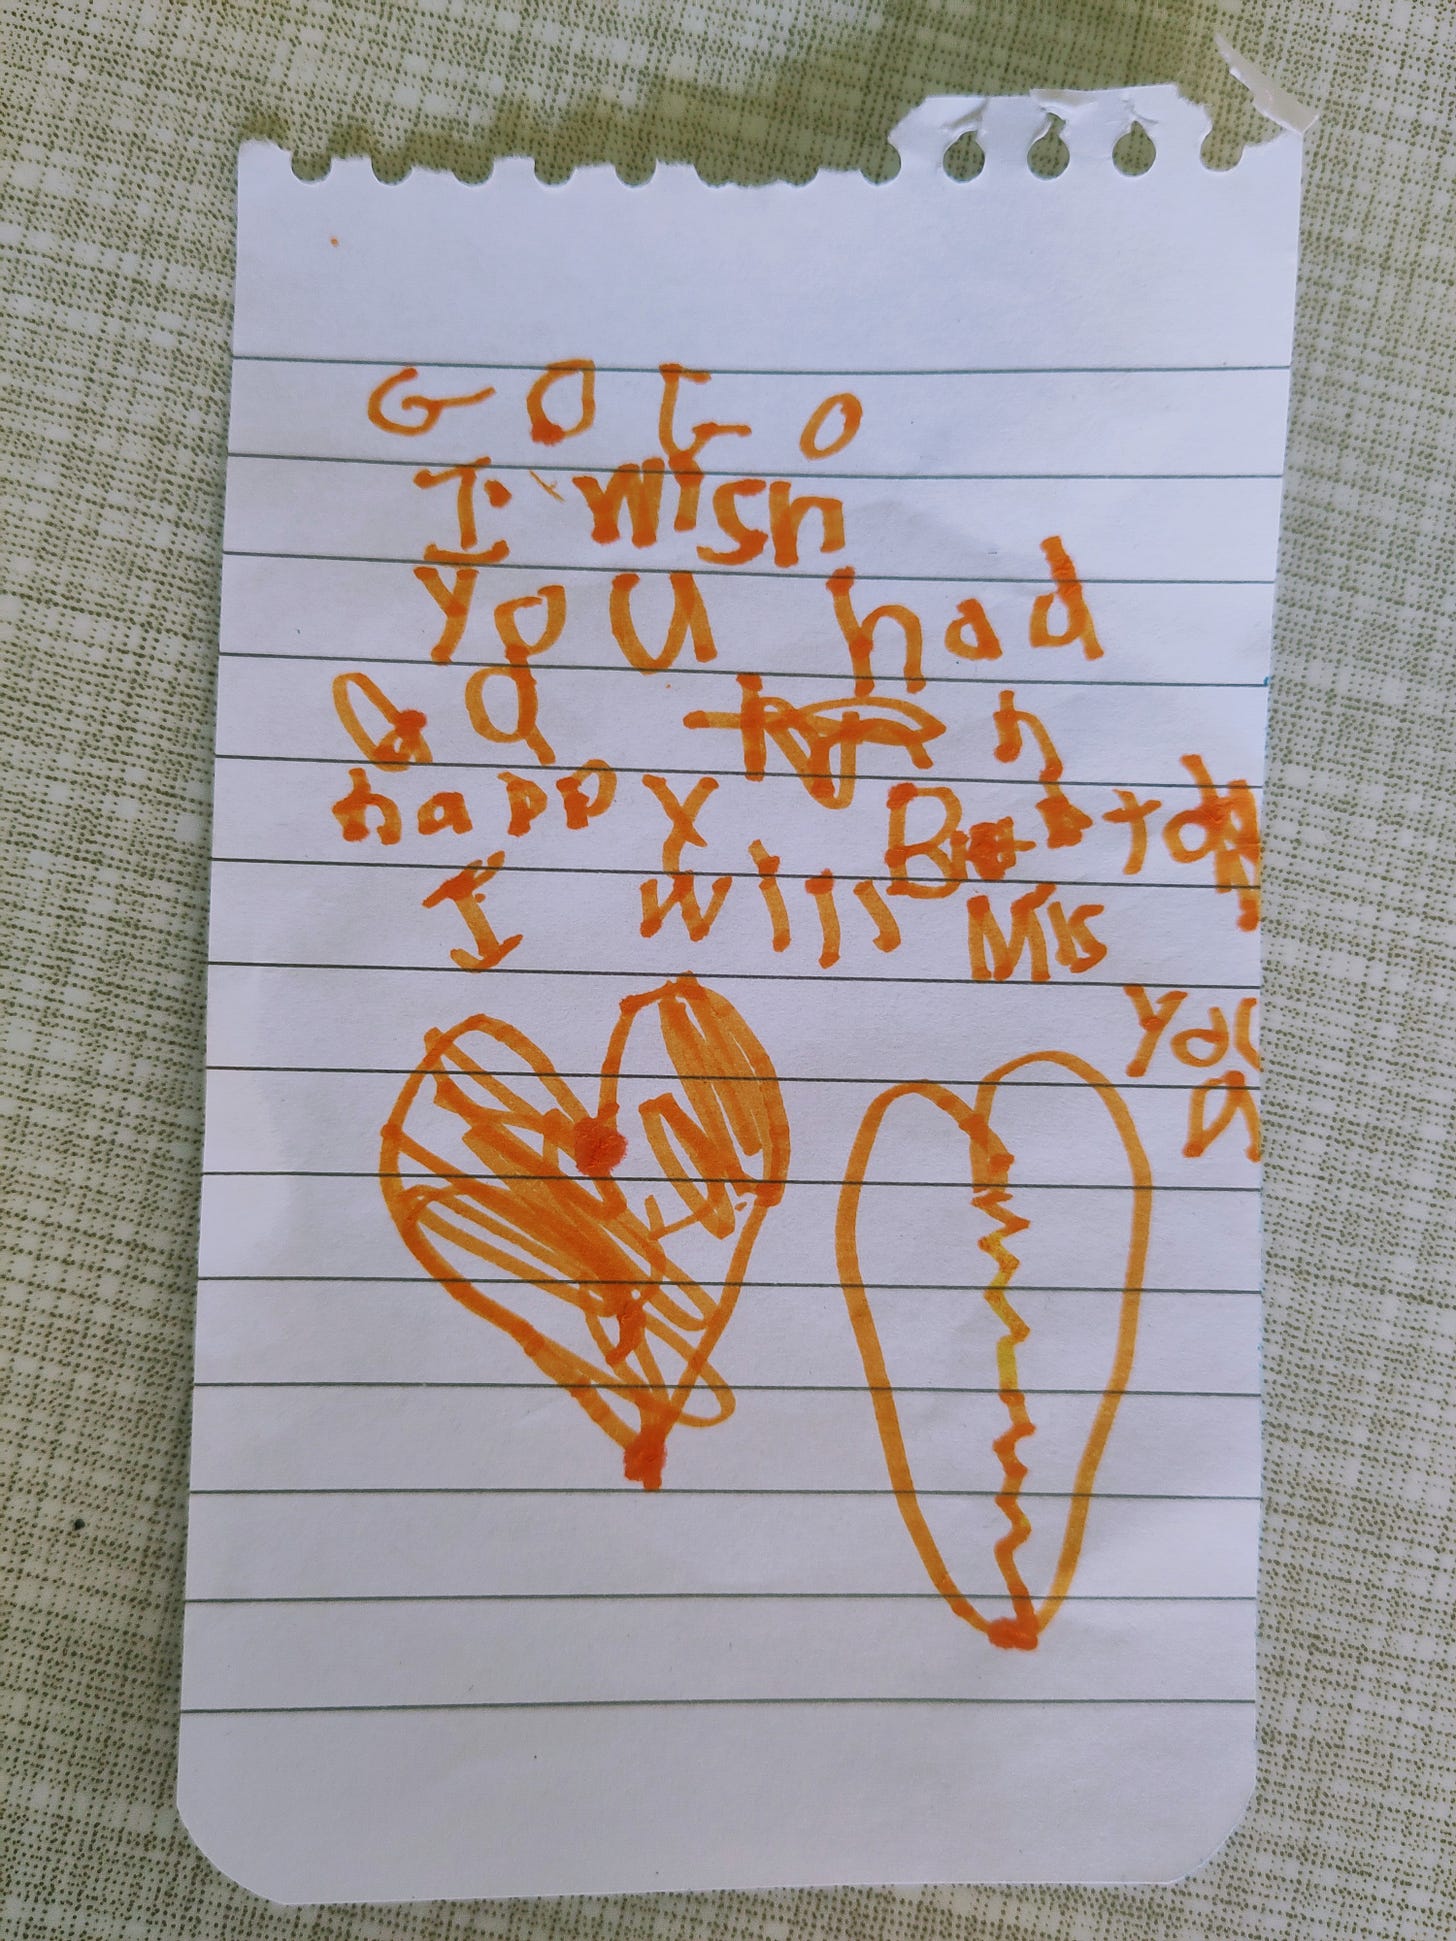 GOGO
I wish
you had
a
happy
I will Mis
you